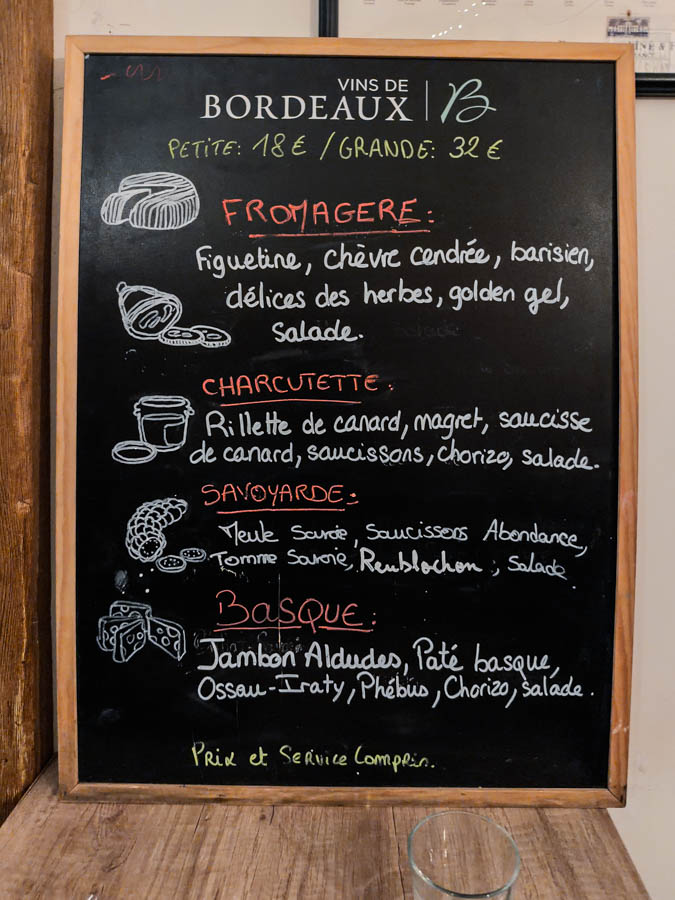 VINS DE
BORDEAUX
PETITE: 18€ / GRANDE: 32€
FROMAGERE:
Figuetine, chèvre cendrée, barisien,
délices des herbes, golden gel,
Salade.
CHARCUTETTE:
Rillette de canard, magret, saucisse
de canard, saucissons, chorizo, salade.
SAVOYARDE:
Meule Savoie, Saucissons Abondance,
Tomme Savoie, Reublochon, Salade.
BASQUE:
Jambon Aldudes, Paté basque,
Ossau-Iraty, Phébus, Chorizo, salade.
Prix et Service Compris.